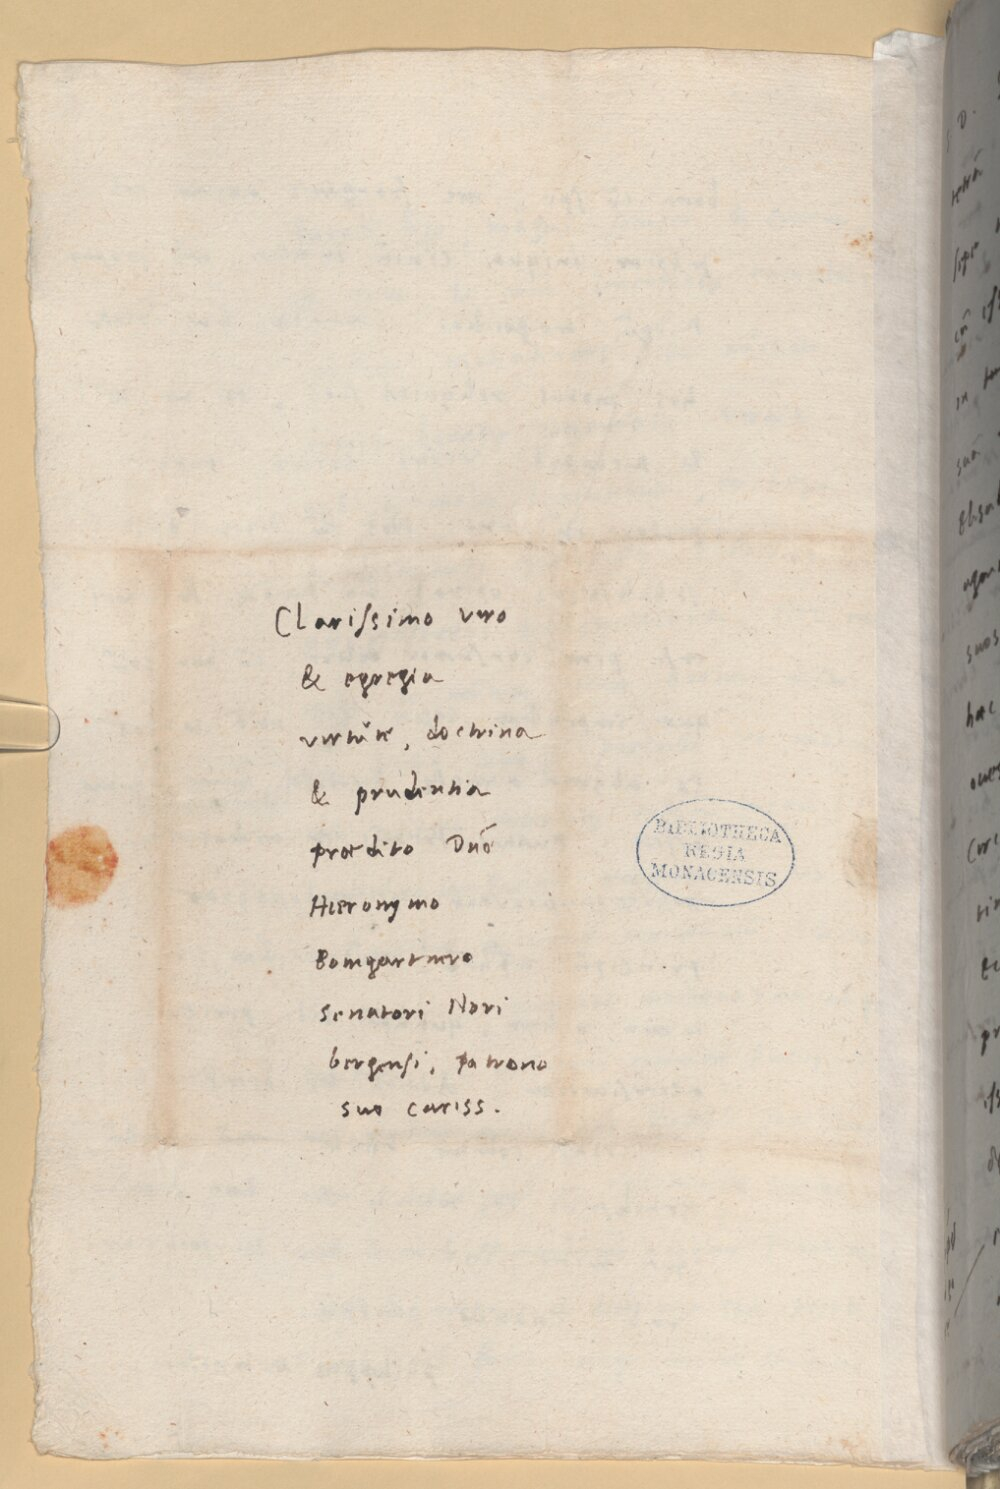 Clarissimo viro
& egregia
virtute, doctrina
& prudentia
praedito Dnō
Hieronymo
Bomgartnero
senatori Nori
bergensi, patrono
suo cariss.
BIBLIOTHECA
REGIA
MONACENSIS